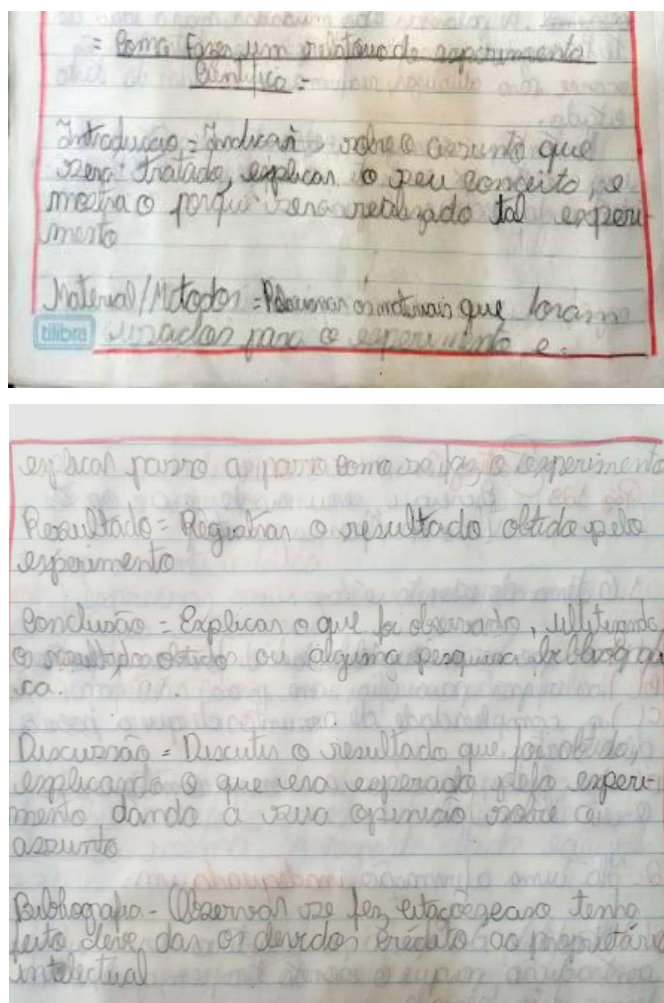 = Como fazer um relatório de experimento
Científico =
Introdução = Indicar sobre o assunto que
será tratado, explicar o seu conceito, e
mostra o porquê será realizado tal experi-
mento
Material/Métodos = Relacionar os materiais que foram
tilibra
usados para o experimento e
explicar passo a passo como se faz o experimento
Resultado = Registrar o resultado obtido pelo
experimento
Conclusão = Explicar o que foi observado, ultilizando
os resultados obtidos ou alguma pesquisa bibliográfi
ca.
Discussão = Discutir o resultado que foi obtido,
explicando o que era esperado pelo experi-
mento dando a sua opinião sobre
assunto
Bibliografia - Observar se fez citações caso tenha
feito deve dar os devidos crédito ao proprietário
intelectual